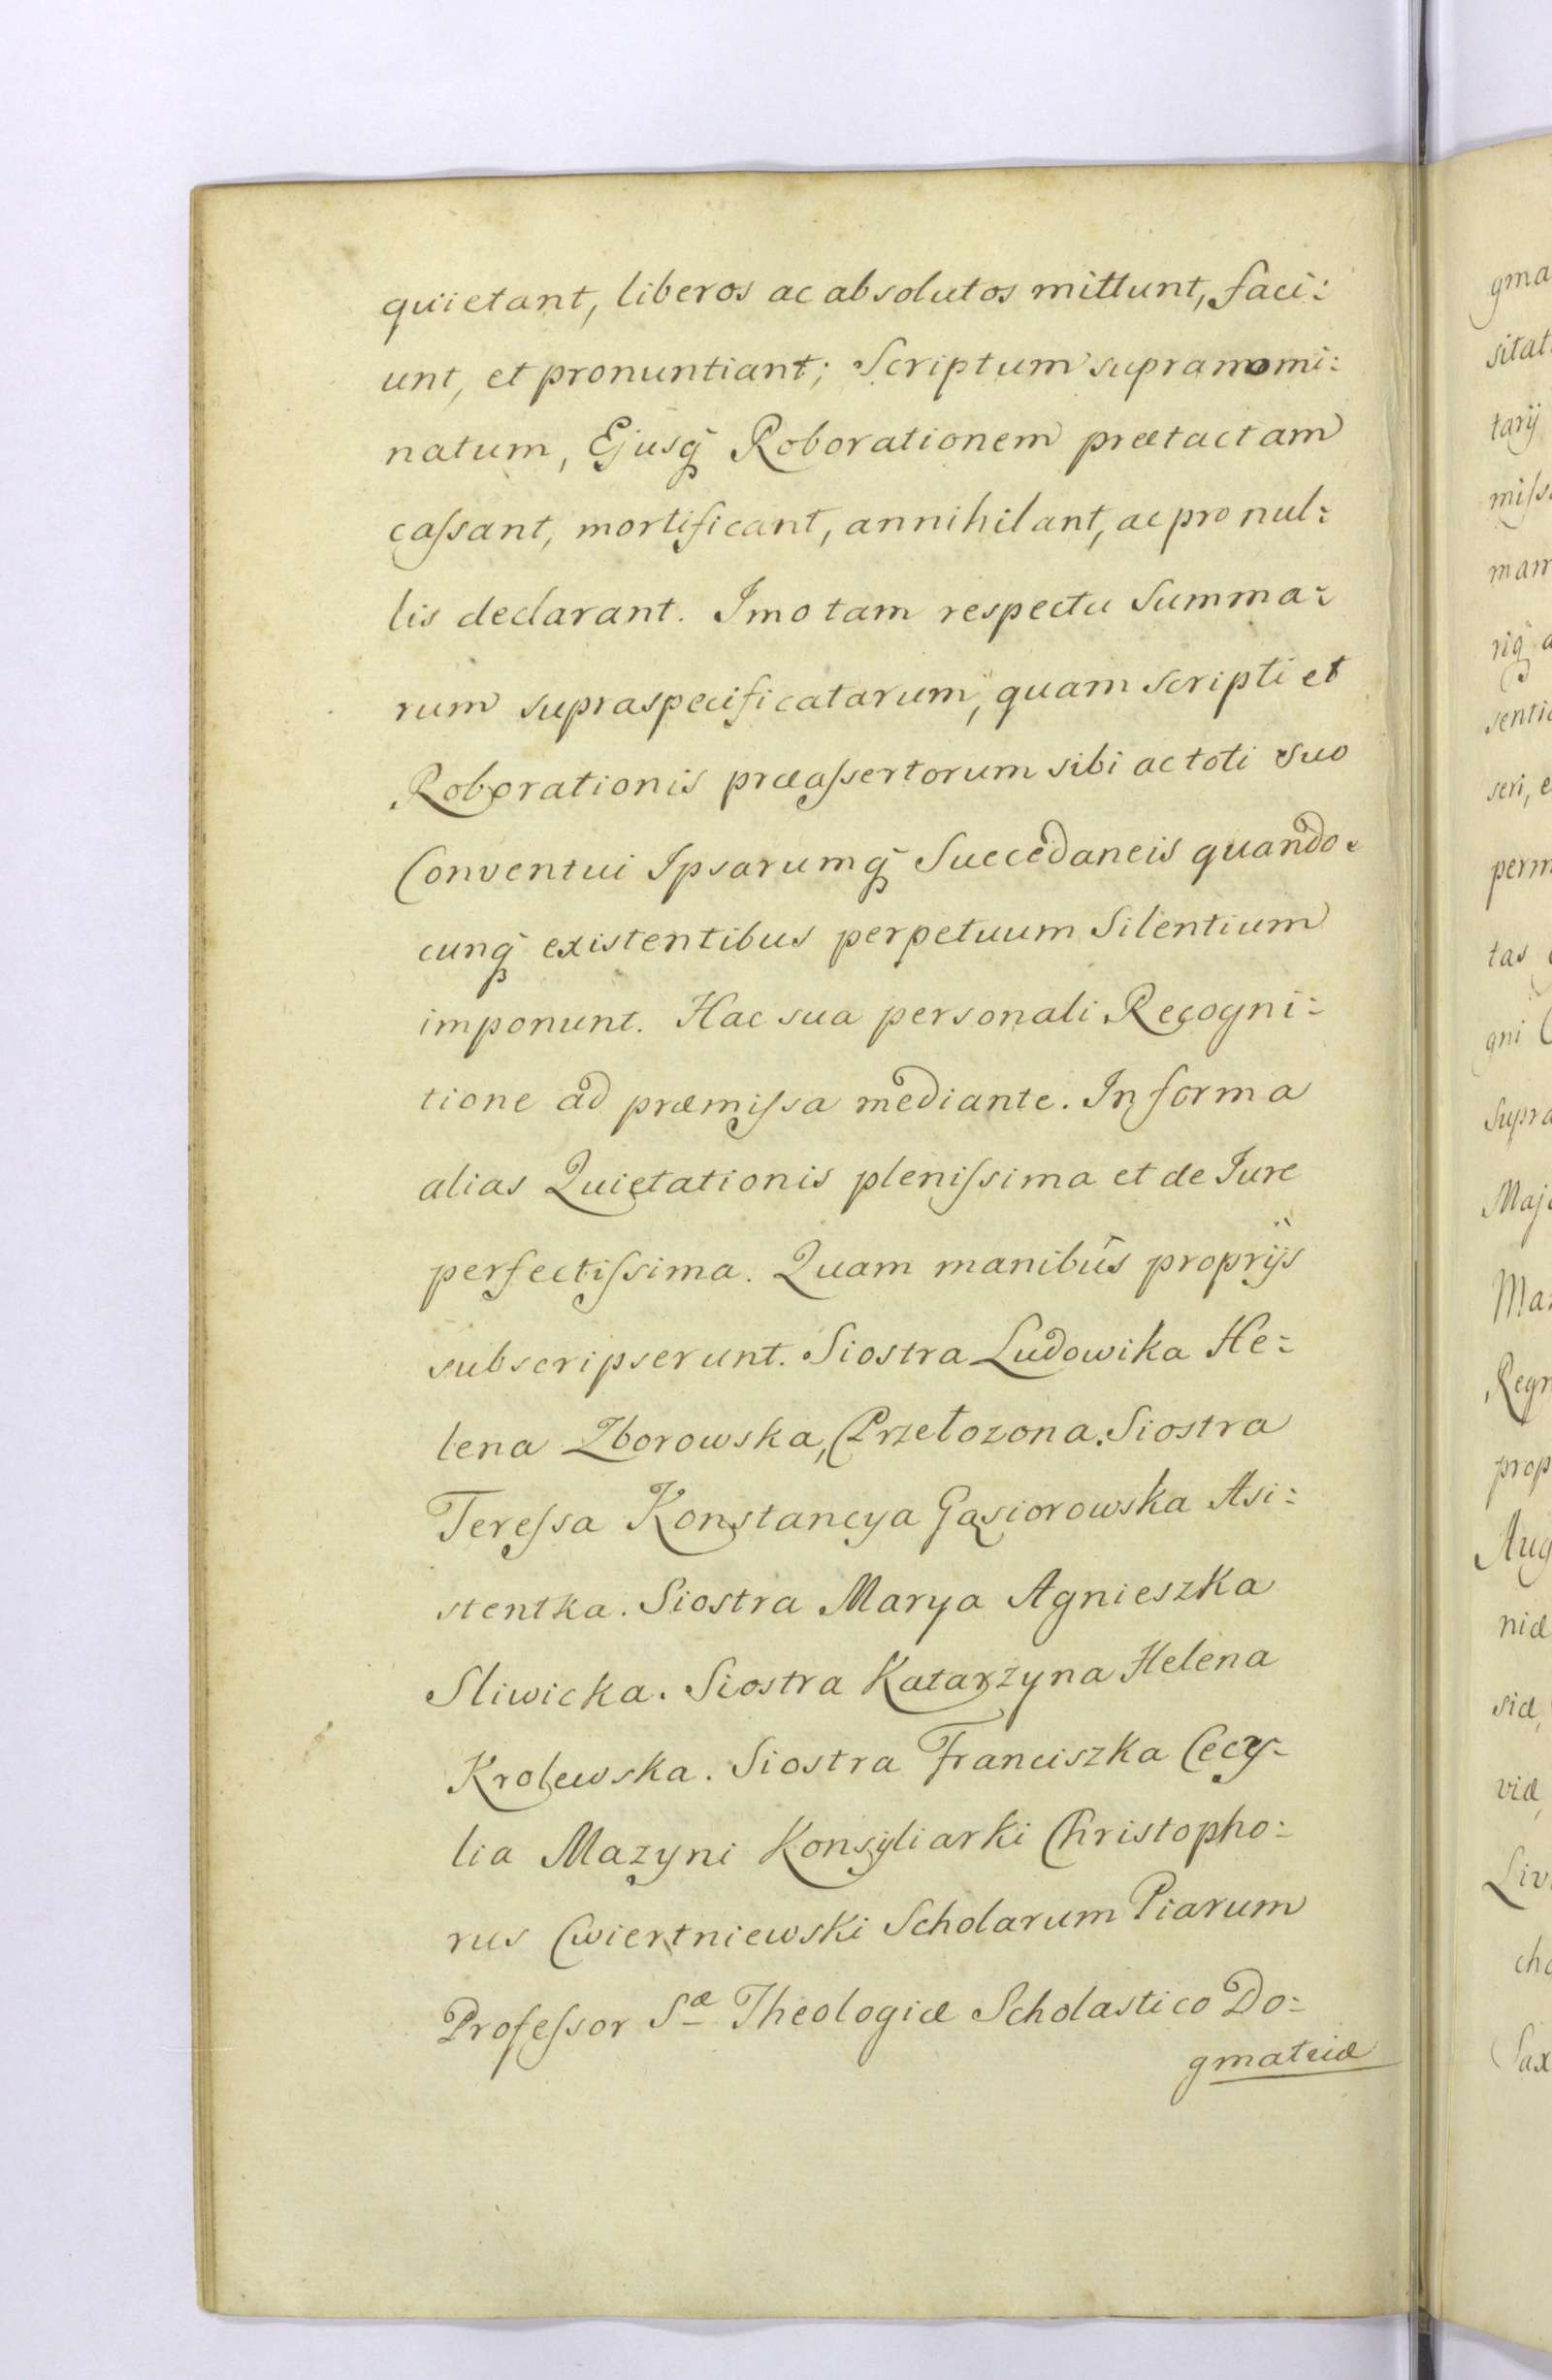 quietant, liberos ac absolutos mittunt, faci:
unt, et pronuntiant; Scriptum supramomi:
natum, Ejusq̃ Roborationem prætactam
caſsant, mortificant, annihilant, ac pro nul:
lis declarant. Imo tam respectu Summa:
rum supraspecificatarum, quam scripti et
Roborationis præaſsertorum sibi ac toti suo
Conventui Ipsarumq̃ Succedaneis quando:
cunq̃ existentibus perpetuum Silentium
imponunt. Hac sua personali Recogni:
tione ad præmiſsa mediante. In forma
alias Quietationis pleniſsima et de Jure
perfectiſsima. Quam manibus proprijs
subscripserunt. Siostra Ludowika He:
lena Zborowska, Przełozona. Siostra
Tereſsa Konstancya Gąsiorowska Asi:
stentka. Siostra Marya Agnieszka
Sliwicka. Siostra Katarzyna Helena
Krolewska. Siostra Franciszka Cecy:
lia Mazyni Konsyliarki Christopho:
rus Cwiertniewski Scholarum Piarum
Profeſsor Sæ Theologiæ Scholastico Do:
gmaticæ
gma
sitat
tarij
miſs
mam
riq̃
senti
seri, e
perm
tas
gni
Supra
Maj
Ma
Regn
prop
Aug
niæ
siæ,
viæ,
Liv
cho
Sax